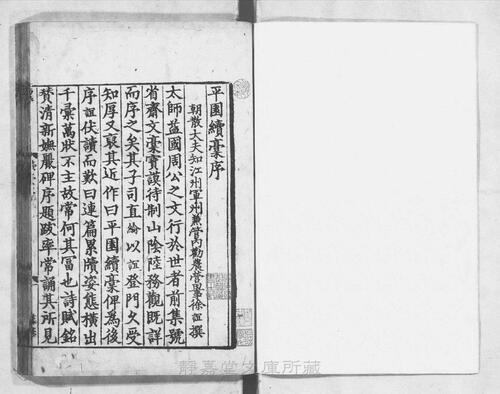 平園續稾序
朝散大夫知江州軍州兼管内勸農營田事徐誼撰
太師益國周公之文行於世者前集號
省齋文稾寳謨待制山陰陸務觀既詳
而序之矣其子司直綸以誼登門久受
知厚又裒其近作曰平園續稾俾爲後
序誼伏讀而歎曰連篇累牘姿態横出
千彙萬狀不主故常何其冨也詩賦銘
賛清新嫵麗碑序題跋率常誦其所見
靜嘉堂文庫所蔵